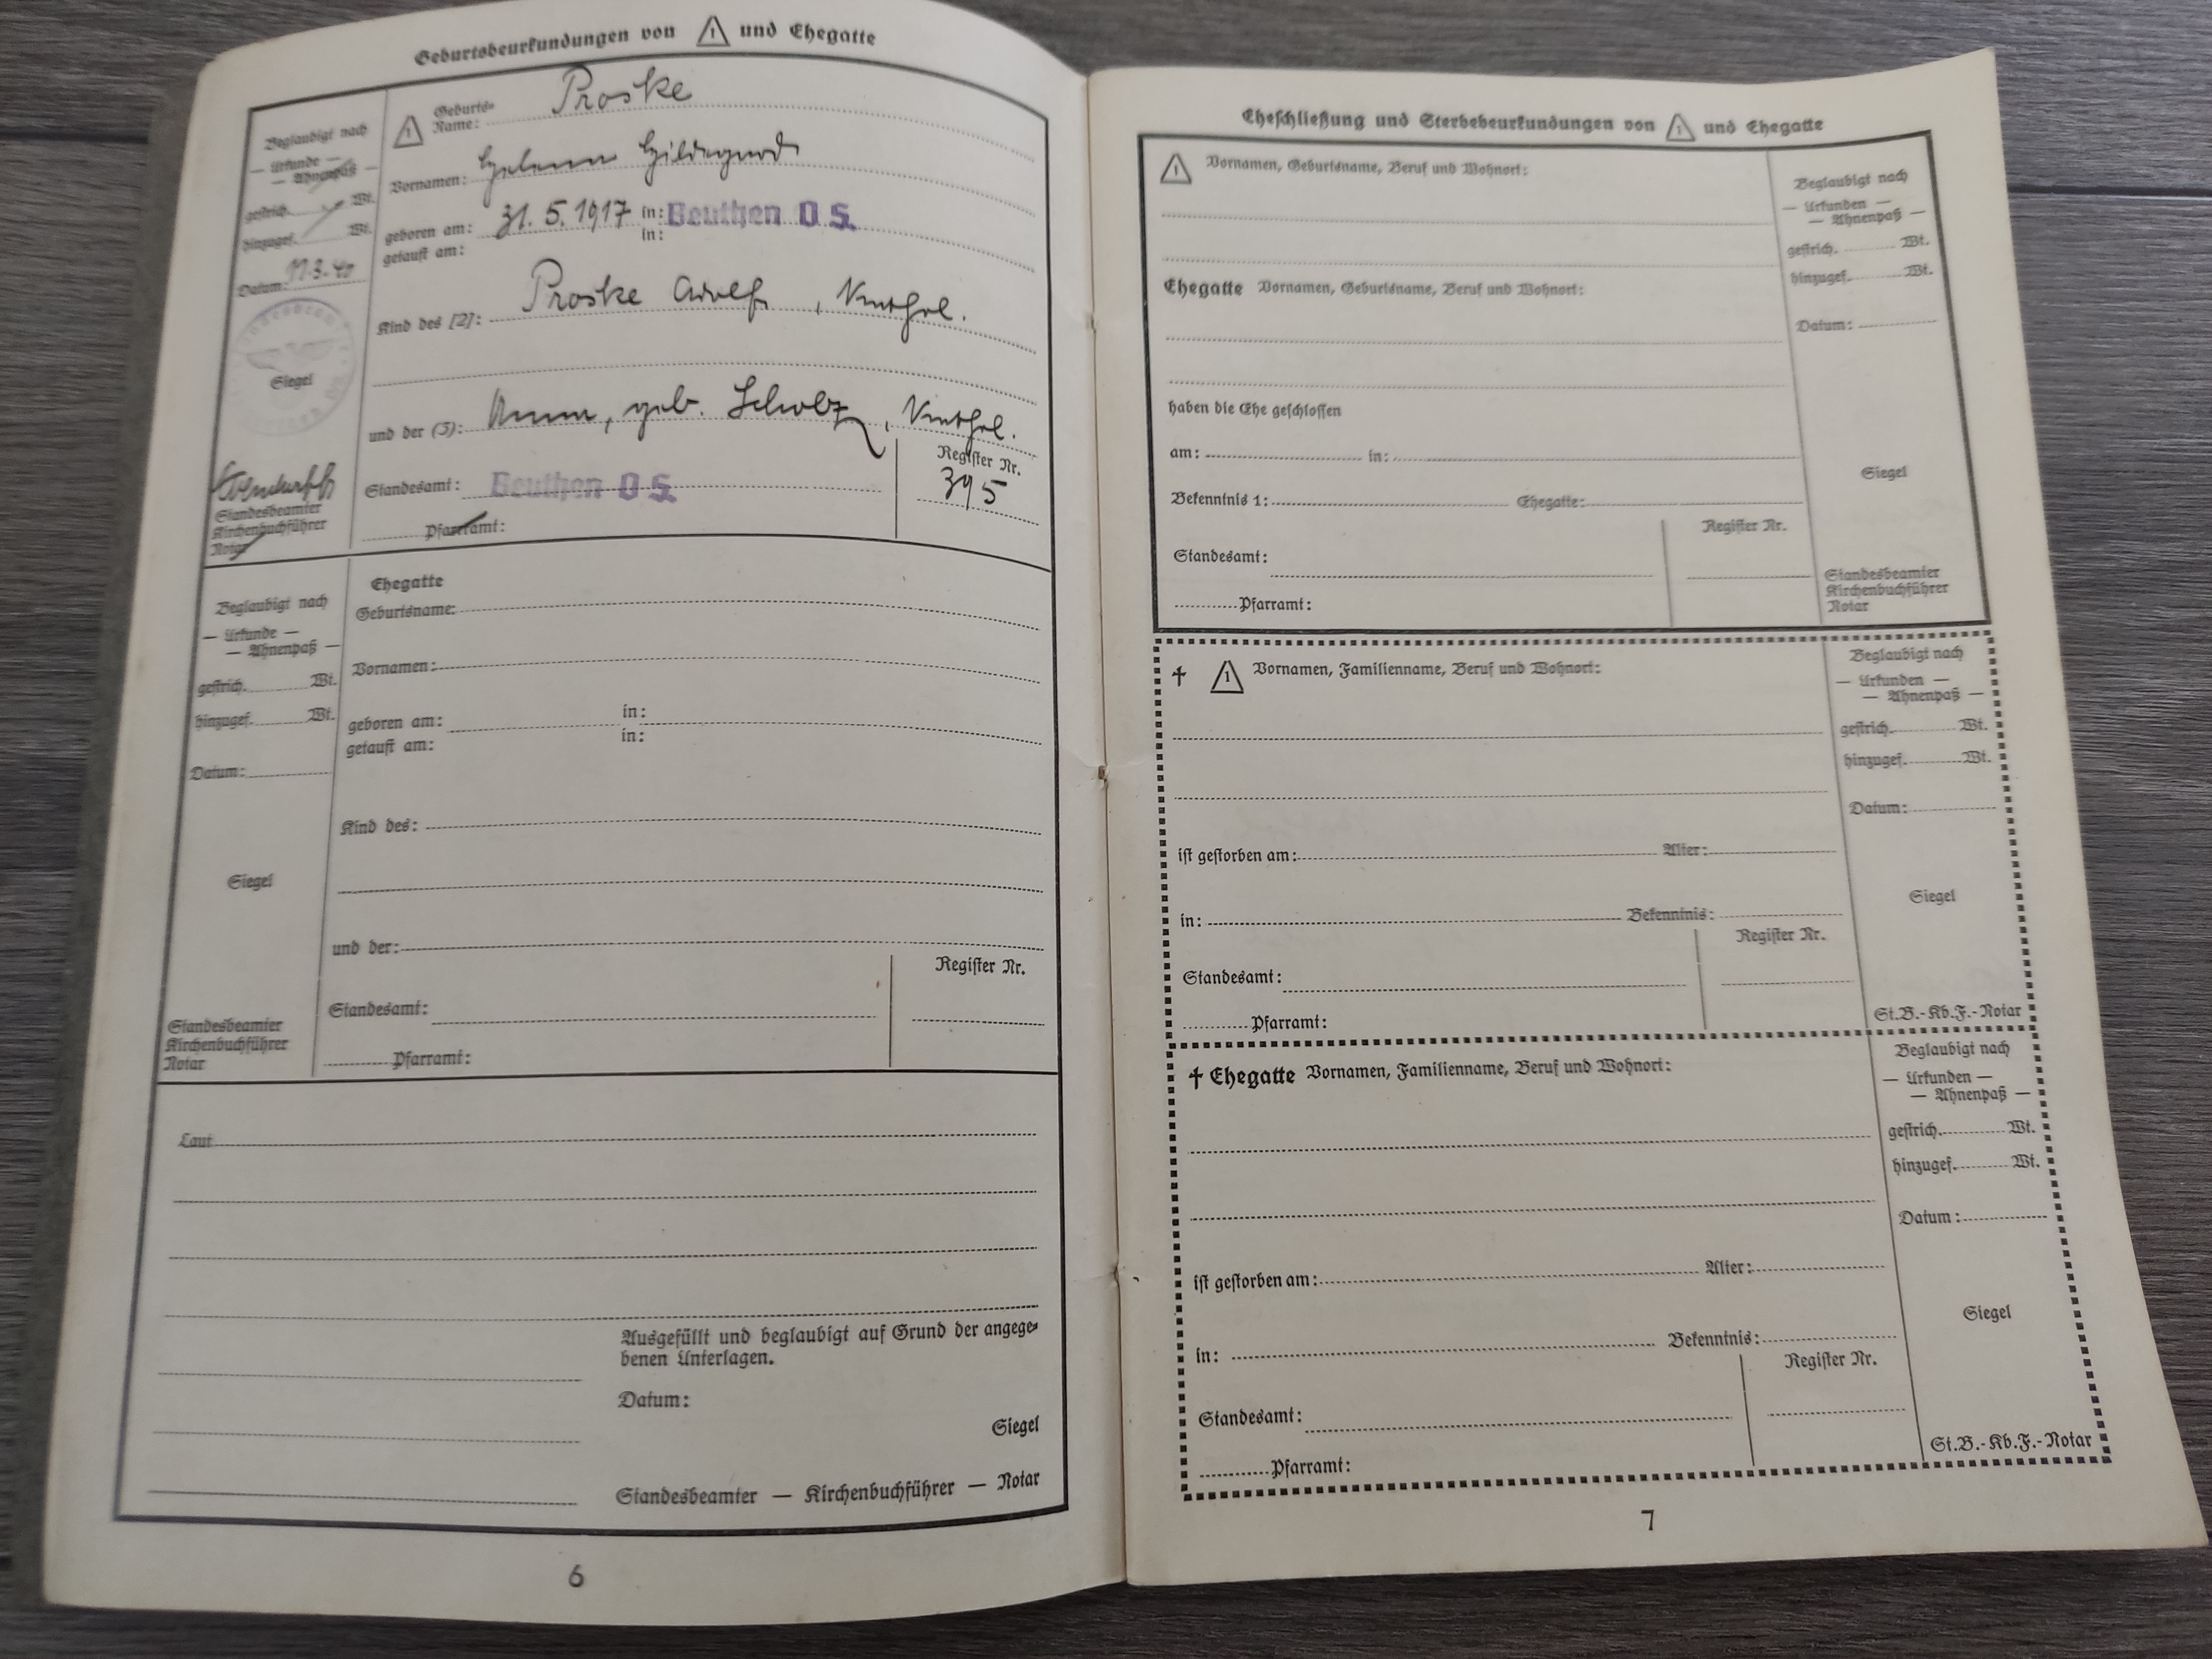 Geburtsbeurkundungen von 1 und Ehegatte
Beglaubigt nach
— Urkunde —
— Ahnenpaß —
gestrich. Wt.
hinzugef. Wt.
Datum: 11.3.40
Siegel
Standesbeamter
Kirchenbuchführer
Notar
1 Geburts-
Name: Proske
Vornamen: Helene Hildegard
geboren am: 31.5.1917 in: Beuthen O.S.
getauft am: in:
Kind des [2]: Proske Adolf, kathol.
und der (3): Anna, geb. Scholz, kathol.
Standesamt: Beuthen O.S.
Pfarramt:
Register Nr.
395
Beglaubigt nach
— Urkunde —
— Ahnenpaß —
gestrich. Wt.
hinzugef. Wt.
Datum:
Siegel
Standesbeamter
Kirchenbuchführer
Notar
Ehegatte
Geburtsname:
Vornamen:
geboren am: in:
getauft am: in:
Kind des:
und der:
Standesamt:
Pfarramt:
Register Nr.
Laut
Ausgefüllt und beglaubigt auf Grund der angege-
benen Unterlagen.
Datum:
Siegel
Standesbeamter — Kirchenbuchführer — Notar
6
Eheschließung und Sterbebeurkundungen von 1 und Ehegatte
1 Vornamen, Geburtsname, Beruf und Wohnort:
Ehegatte Vornamen, Geburtsname, Beruf und Wohnort:
haben die Ehe geschlossen
am: in:
Bekenntnis 1: Ehegatte:
Standesamt:
Pfarramt:
Register Nr.
Beglaubigt nach
— Urkunden —
— Ahnenpaß —
gestrich. Wt.
hinzugef. Wt.
Datum:
Siegel
Standesbeamter
Kirchenbuchführer
Notar
† 1 Vornamen, Familienname, Beruf und Wohnort:
ist gestorben am: Alter:
in: Bekenntnis:
Standesamt:
Pfarramt:
Register Nr.
Beglaubigt nach
— Urkunden —
— Ahnenpaß —
gestrich. Wt.
hinzugef. Wt.
Datum:
Siegel
St.B.-Kb.F.-Notar
† Ehegatte Vornamen, Familienname, Beruf und Wohnort:
ist gestorben am: Alter:
in: Bekenntnis:
Standesamt:
Pfarramt:
Register Nr.
Beglaubigt nach
— Urkunden —
— Ahnenpaß —
gestrich. Wt.
hinzugef. Wt.
Datum:
Siegel
St.B.-Kb.F.-Notar
7